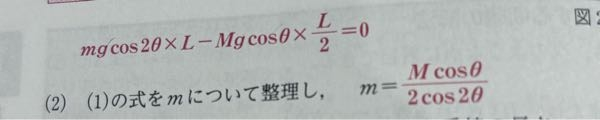 mg cos2θ×L−Mg cosθ×L/2=0
図2
(2) (1)の式をmについて整理し, m=M cosθ/2 cos2θ